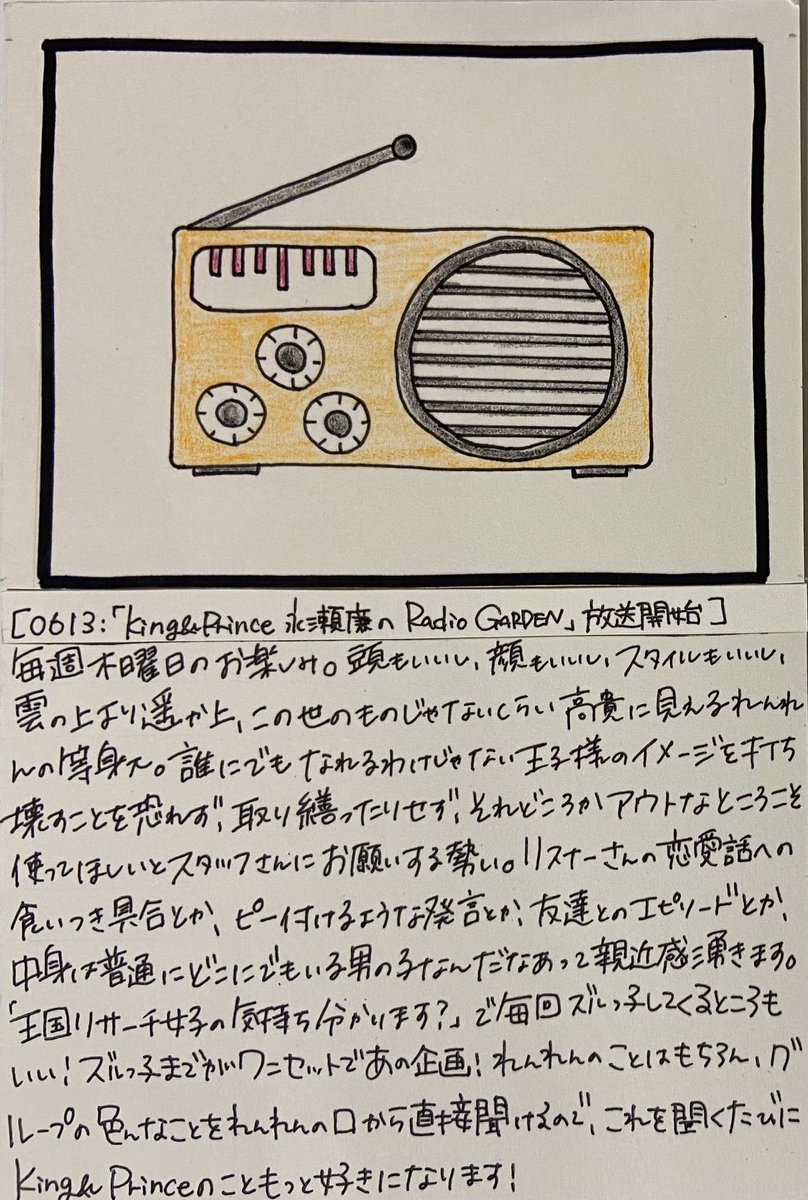 [0613:「King&Prince 永瀬廉の Radio GARDEN」放送開始]
毎週木曜日のお楽しみ。頭もいいし、顔もいいし、スタイルもいいし、
雲の上より遥か上、この世のものじゃないくらい高貴に見えるれんれ
んの等身大。誰にでもなれるわけじゃない王子様のイメージを打ち
壊すことを恐れず、取り繕ったりせず、それどころかアウトなところこそ
使ってほしいとスタッフさんにお願いする勢い。リスナーさんの恋愛話への
食いつき具合とか、ピー付けるような発言とか、友達とのエピソードとか、
中身は普通にどこにでもいる男の子なんだなあって親近感湧きます。
「王国リサーチ女子の気持ち分かります?」で毎回ズルっ子してくるところも
いい!ズルっ子までがワンセットであの企画!れんれんのことはもちろん、グ
ループの色んなことをれんれんの口から直接聞けるので、これを聞くたびに
King& Princeのこともっと好きになります!